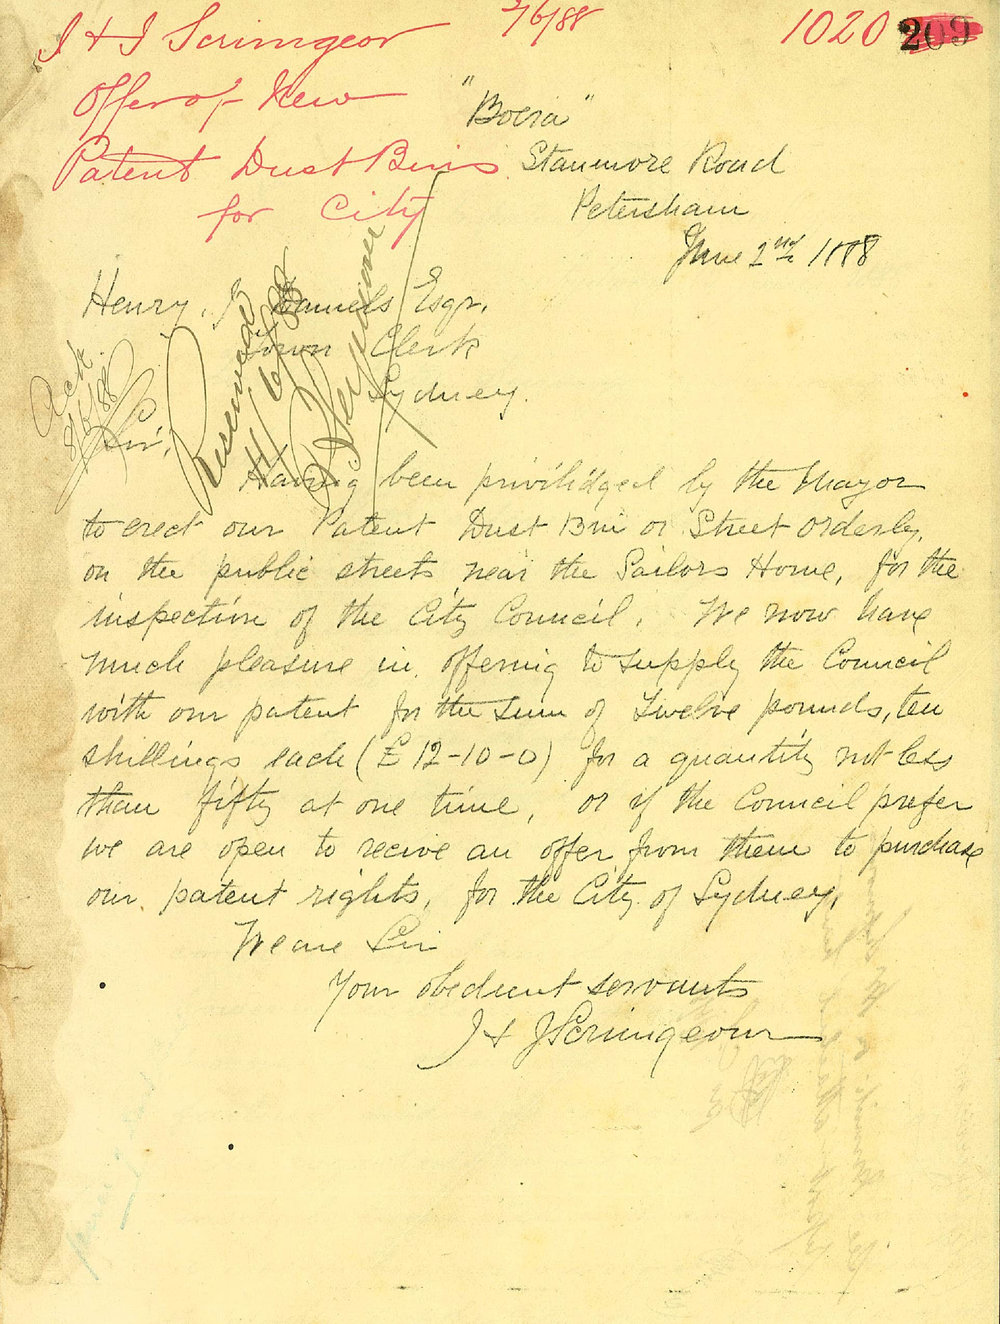 J & J Scrimgeor 2/6/88 1020 209
Offer of New
Patent Dust Bins
for City
"Boera"
Stanmore Road
Petersham
June 2nd 1888
Henry. J Daniels Esqr.
Town Clerk
Sydney.
Ack.
8/6/88
Received
4/6/88
Sir,
Having been privilidged by the Mayor
to erect our Patent Dust Bin or Street Orderly,
on the public streets near the Sailors Home, for the
inspection of the City Council. We now have
much pleasure in offering to supply the Council
with our patent for the sum of twelve pounds, ten
shillings each (£12-10-0) for a quantity not less
than fifty at one time, or if the Council prefer
we are open to recive an offer from them to purchase
our patent rights, for the City of Sydney.
We are Sir
Your obedient servants
J & J Scrimgeour